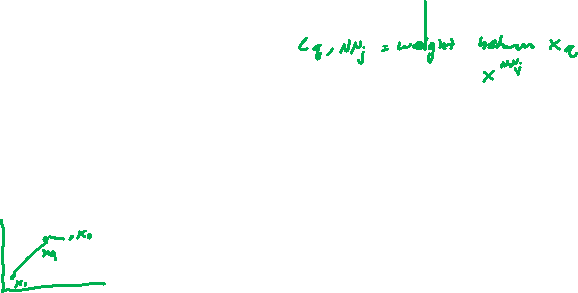 C q, NNj = weight between x q
x NNj
x q
x